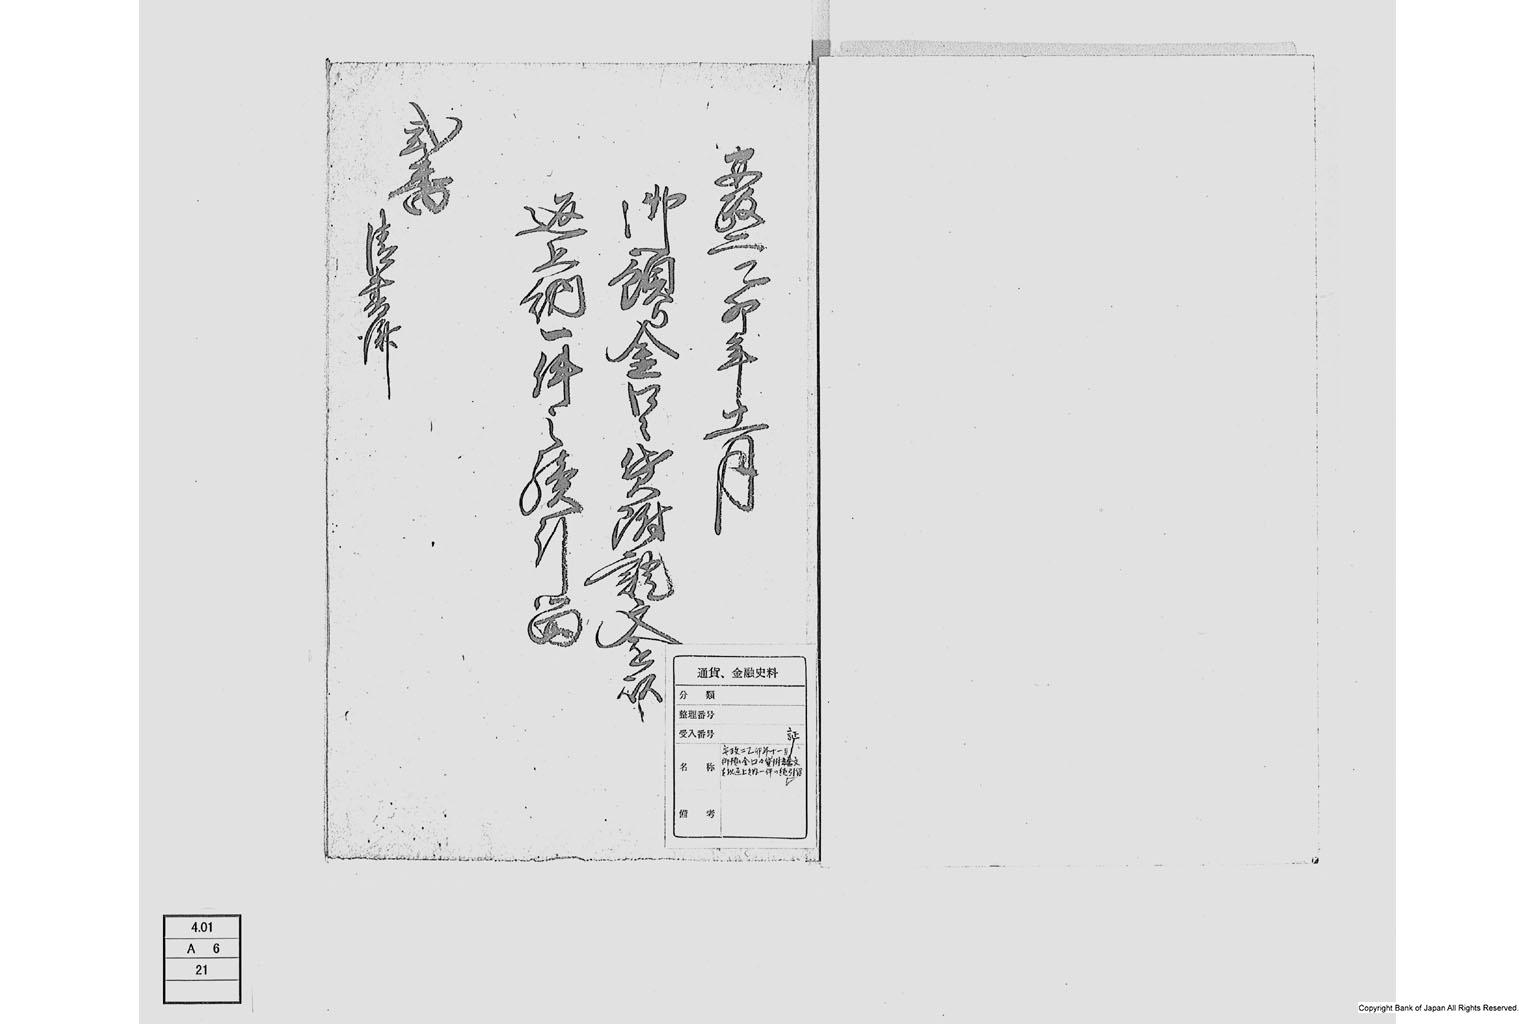 安政二乙卯年十一月
御預り金口々貸附証文を以
返上納一件之続引留
弐番
清書済
通貨、金融史料
分類
整理番号
受入番号
名称
証
安政二乙卯年十一月
御預り金口々貸附証文
を以返上納一件の続引留
備考
4.01
A 6
21
Copyright Bank of Japan All Rights Reserved.